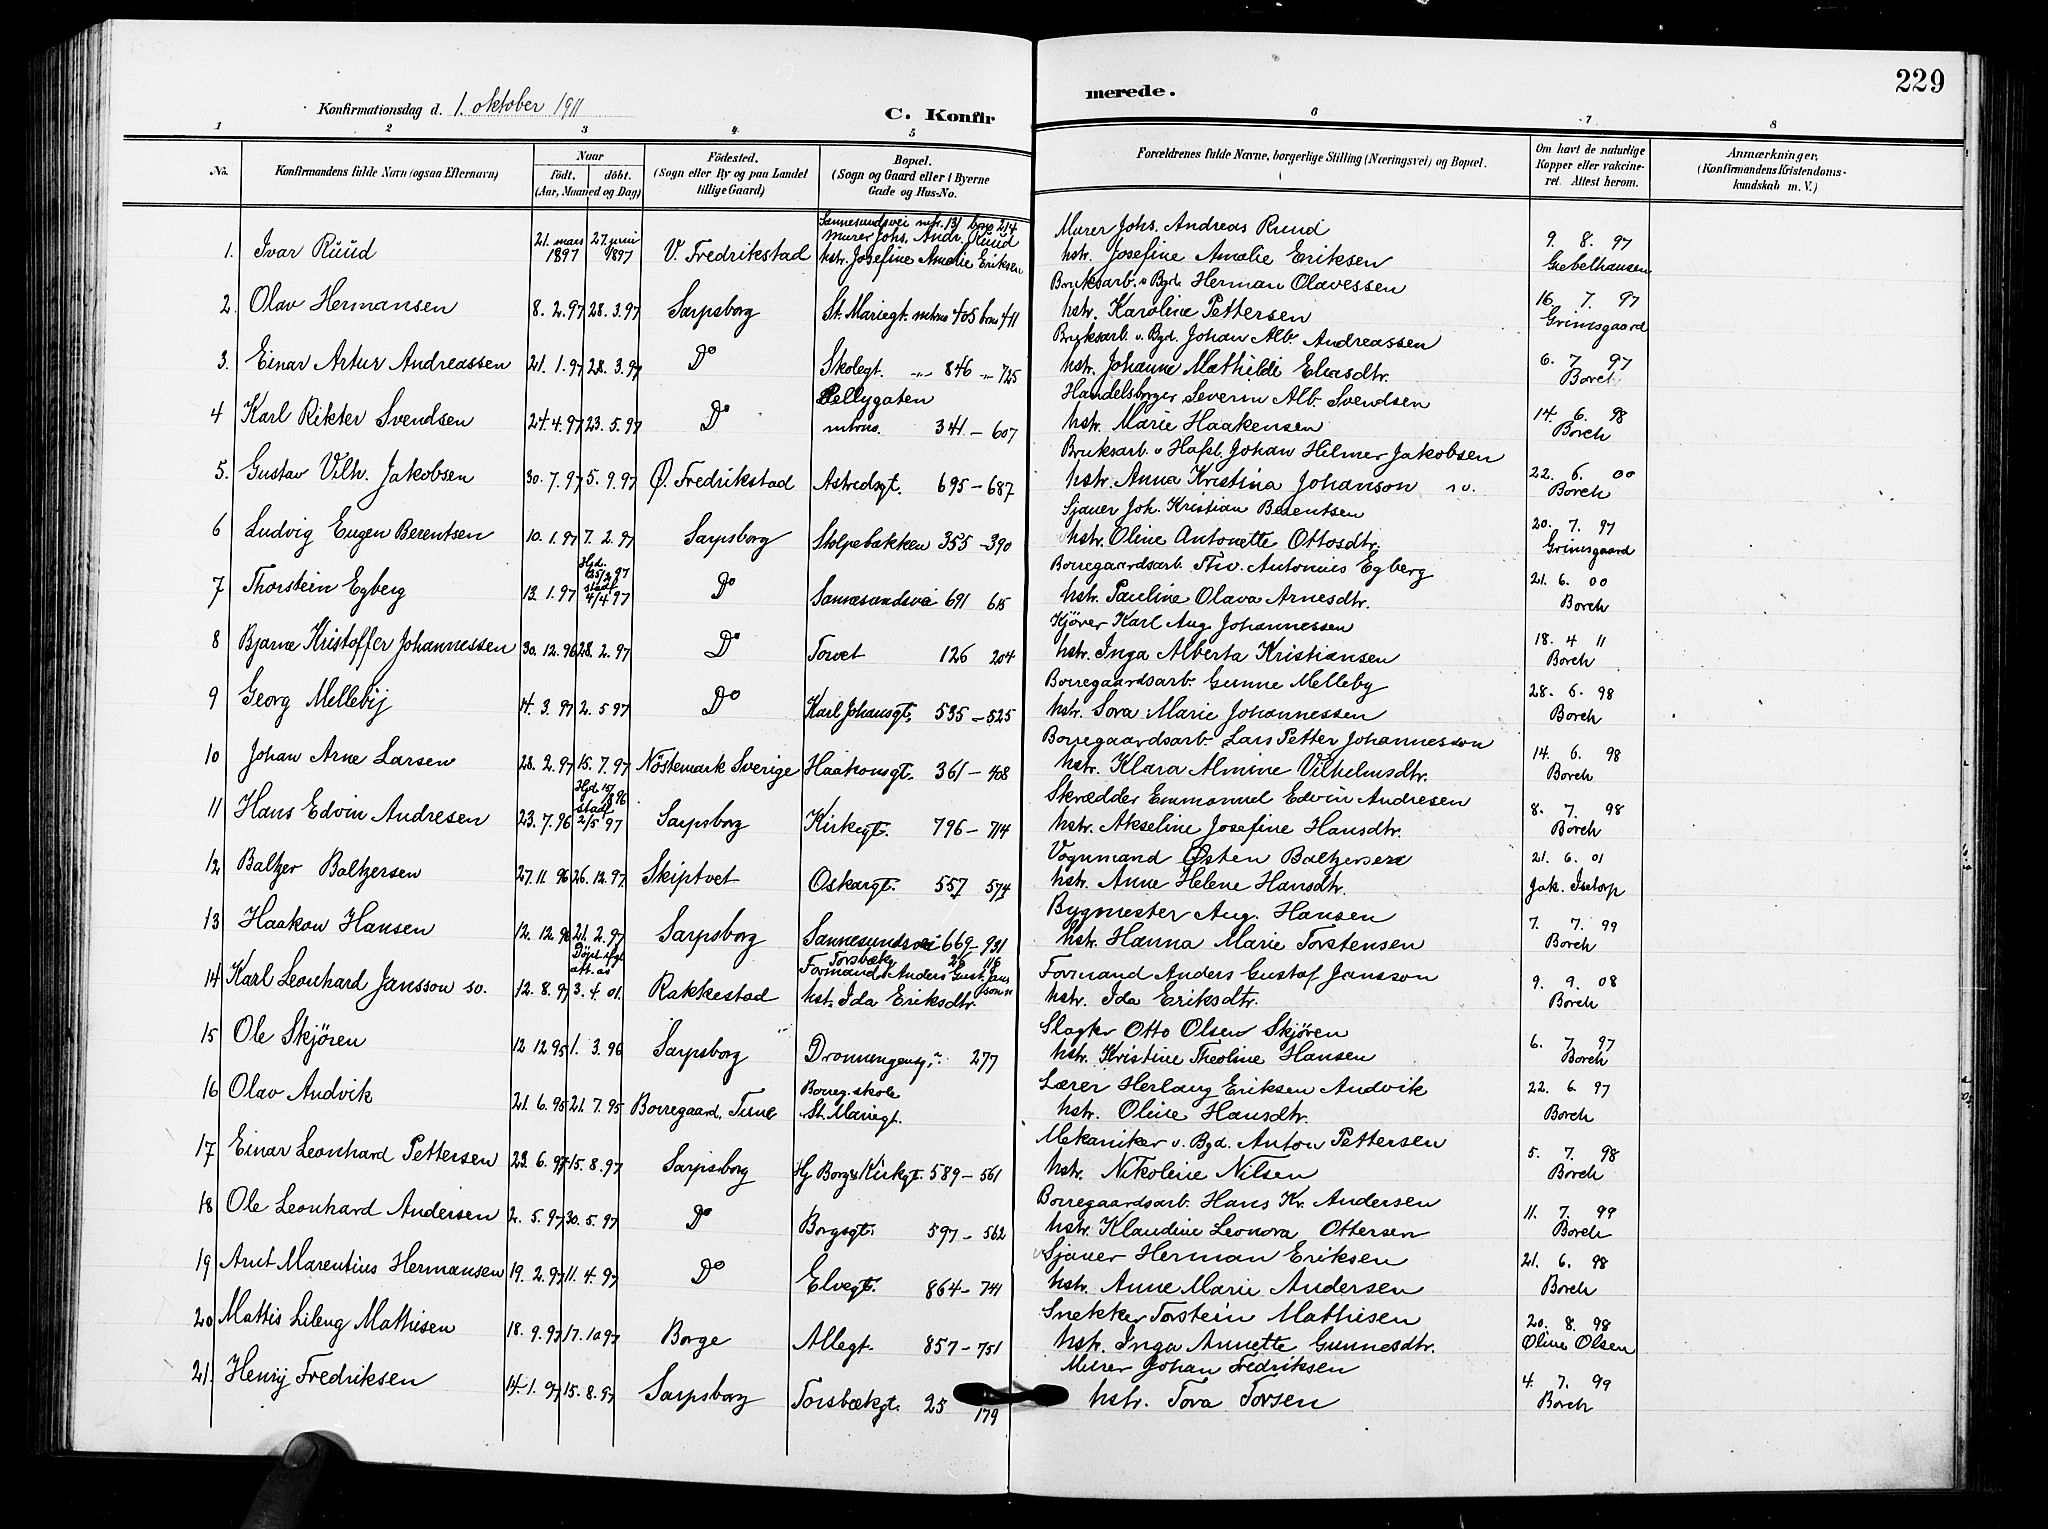 229
Konfirmationsdag d. 1. oktober 1911
C. Konfirmerede.
1 2 3 4 5 6 7 8
No.
Konfirmandens fulde Navn (ogsaa Efternavn)
Naar født. døbt. (Aar, Maaned og Dag)
Fødested. (Sogn eller By og paa Landet tillige Gaard)
Bopæl. (Sogn og Gaard eller i Byerne Gade og Hus-No.
Forældrenes fulde Navne, borgerlige Stilling (Næringsvei) og Bopæl.
Om havt de naturlige Kopper eller vakcineret. Attest herom.
Anmærkninger, (Konfirmandens Kristendomskundskab m. V.)
1. Ivar Ruud 21. mars 1897 27. juni 1897 V. Fredrikstad Sannesundsvei mtr. 131 brno 214 Murer Johs. Andr. Ruud hstr. Josefine Amalie Eriksen
Murer Johs. Andreas Ruud
hstr. Josefine Amalie Eriksen 9. 8. 97 Giebelhausen
2. Olav Hermansen 8. 2. 97 28. 3. 97 Sarpsborg St. Mariegt. mtrno 405 brno 411
Bruksarb. v Bgd. Herman Olavessen
hstr. Karoline Pettersen 16. 7. 97 Grimsgaard
3. Einar Artur Andreassen 21. 1. 97 28. 3. 97 Do Skolegt. -„- 846 -„- 725
Bruksarb. v. Bgd. Johan Alb. Andreassen
hstr. Johanne Mathilde Eliasdtr. 6. 7. 97 Borch
4 Karl Rikter Svendsen 24. 4. 97 23. 5. 97 Do Pellygaten mtrno. 341 - 607
Handelsborger Severin Alb. Svendsen
hstr. Marie Haakensen 14. 6. 98 Borch
5. Gustav Vilh. Jakobsen 30. 7. 97 5. 9. 97 Ø. Fredrikstad Astridsgt. 695 - 687
Bruksarb. v Hafsl. Johan Hilmer Jakobsen
hstr. Anna Kristina Johanson so. 22. 6. 00 Borch
6 Ludvig Eugen Berentsen 10. 1. 97 7. 2. 97 Sarpsborg Stolpebakken 355 - 390
Sjauer Joh. Kristian Berentsen
hstr. Oline Antonette Ottosdtr. 20. 7. 97 Grimsgaard
7 Thorstein Egberg 13. 1. 97 Hjd. 25/2 97 stadf. 4/4 97 Do Sannesundsvei 691 615
Borregaardsarb. Thv. Antonius Egberg
hstr. Pauline Olava Arnesdtr. 21. 6. 00 Borch
8 Bjarne Kristoffer Johannessen 30. 12. 96 28. 2. 97 Do Torvet 126 204
Kjører Karl Aug. Johannessen
hstr. Inga Alberta Kristiansen 18. 4 11 Borch
9 Georg Melleby 14. 3. 97 2. 5 97 Do Karl Johansgt. 535 - 525
Borregaardsarb. Gunne Melleby
hstr. Sora Marie Johannessen 28. 6. 98 Borch
10 Johan Arne Larsen 28. 2. 97 15. 7. 97 Nöstemark Sverige Haakonsgt. 361 - 408
Borregaardsarb. Lars Petter Johannesson
hstr. Klara Almine Vilhelmsdtr. 14. 6. 98 Borch
11 Hans Edvin Andresen 23. 7. 96 Hjd. 15/8 96 stadf. 2/5 97 Sarpsborg Kirkegt. 796 - 714
Skrædder Emmanuel Edvin Andresen
hstr. Akseline Josefine Hansdtr. 8. 7. 98 Borch
12 Baltzer Baltzersen 27. 11. 96 26. 12. 97 Skiptvet Oskarsgt. 557 574
Vognmand Østen Baltzersen
hstr. Anne Helene Hansdtr. 21. 6. 01 Jak. Isetorp
13 Haakon Hansen 12. 12. 96 21. 2. 97 Sarpsborg Sannesundsvei 669 - 931
Bygmester Aug. Hansen
hstr. Hanna Marie Torstensen 7. 7. 99 Borch
14 Karl Leonhard Jansson so. 12. 8. 97 Døpt ifgl att. as 3. 4. 01. Rakkestad Torsbæk 26 116 Formand Anders Gust. Jansson hst. Ida Eriksdtr.
Formand Anders Gustaf Jansson
hstr. Ida Eriksdtr. 9. 9. 08 Borch
15 Ole Skjøren 12 12 95 1. 3. 96 Sarpsborg Dronningensgt. 277
Slagter Otto Olsen Skjøren
hstr. Kristine Theoline Hansen 6. 7. 97 Borch
16 Olav Andvik 21. 6. 95 21. 7. 95 Borregaard, Tune Borreg. skole St. Mariegt.
Lærer Herlaug Eriksen Andvik
hstr. Oline Hansdtr. 22. 6. 97 Borch
17 Einar Leonhard Pettersen 23. 6. 97 15. 8. 97 Sarpsborg Hj Borgs Kirkegt. 589 - 561
Mekaniker v. Bgd. Anton Pettersen
hstr. Nikoline Nilsen 5. 7. 98 Borch
18 Ole Leonhard Andersen 2. 5. 97 30. 5. 97 Do Borgsgt. 597 - 562
Borregaardsarb. Hans Kr. Andersen
hstr. Klaudine Leonora Ottersen 11. 7. 99 Borch
19 Arnt Marentius Hermansen 19. 2. 97 11. 4. 97 Do Elvegt. 864 - 741
Sjauer Herman Eriksen
hstr. Anne Marie Andersen 21. 6. 98 Borch
20 Mattis Lileng Mathisen 18. 9. 97 17. 10 97 Borge Allegt. 857 - 751
Snekker Torstein Mathisen
hstr. Inga Annette Gunnesdtr. 20. 8. 98 Oline Olsen
21. Henry Fredriksen 14. 1. 97 15. 8. 97 Sarpsborg Torsbækgt. 25 179
Murer Johan Fredriksen
hstr. Tora Torsen 4. 7. 99 Borch